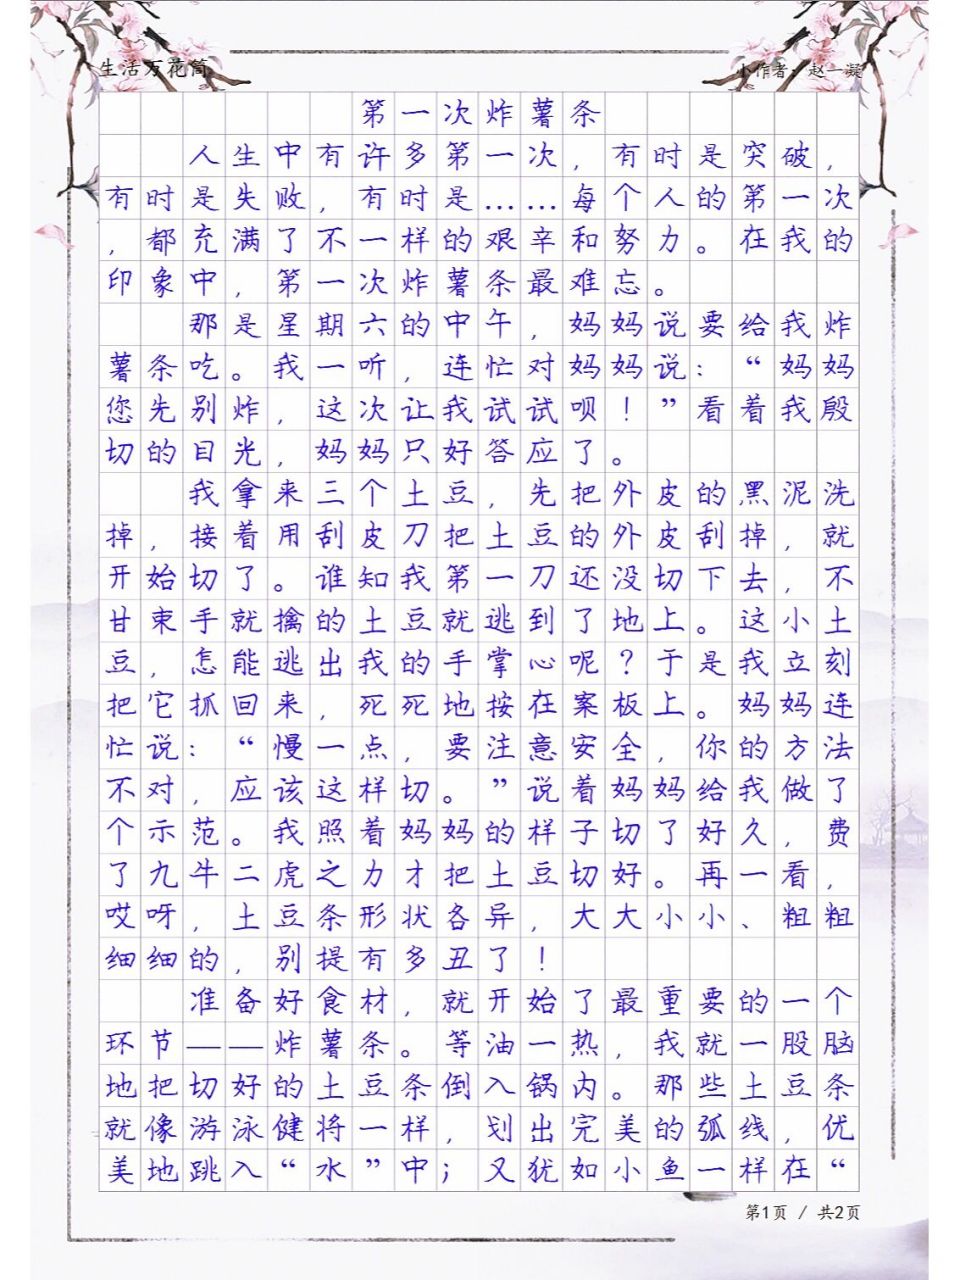 生活万花筒
小作者：赵一凝
第一次炸薯条
人生中有许多第一次，有时是突破，
有时是失败，有时是……每个人的第一次
，都充满了不一样的艰辛和努力。在我的
印象中，第一次炸薯条最难忘。
那是星期六的中午，妈妈说要给我炸
薯条吃。我一听，连忙对妈妈说：“妈妈
您先别炸，这次让我试试呗！”看着我殷
切的目光，妈妈只好答应了。
我拿来三个土豆，先把外皮的黑泥洗
掉，接着用刮皮刀把土豆的外皮刮掉，就
开始切了。谁知我第一刀还没切下去，不
甘束手就擒的土豆就逃到了地上。这小土
豆，怎能逃出我的手掌心呢？于是我立刻
把它抓回来，死死地按在案板上。妈妈连
忙说：“慢一点，要注意安全，你的方法
不对，应该这样切。”说着妈妈给我做了
个示范。我照着妈妈的样子切了好久，费
了九牛二虎之力才把土豆切好。再一看，
哎呀，土豆条形状各异，大大小小、粗粗
细细的，别提有多丑了！
准备好食材，就开始了最重要的一个
环节——炸薯条。等油一热，我就一股脑
地把切好的土豆条倒入锅内。那些土豆条
就像游泳健将一样，划出完美的弧线，优
美地跳入“水”中；又犹如小鱼一样在“
第1页 / 共2页